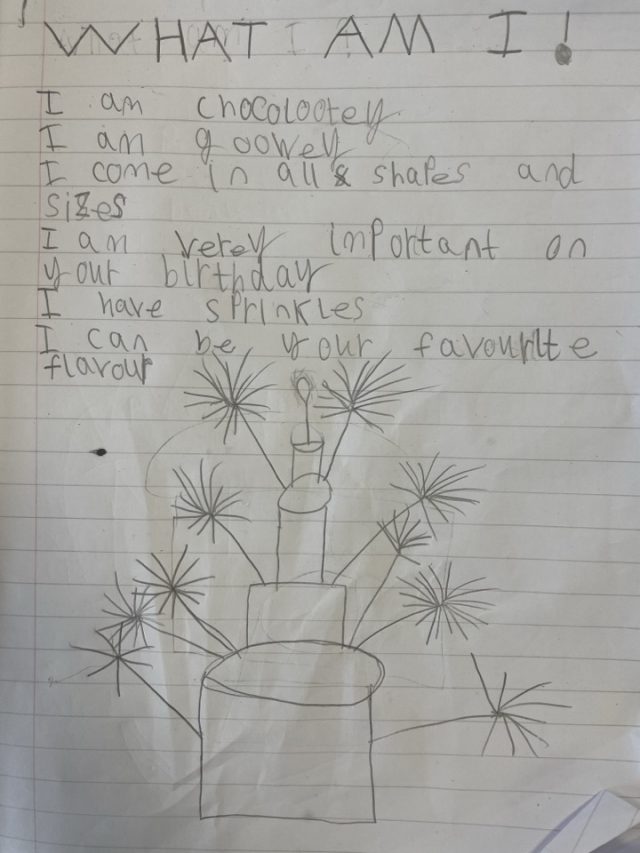 WHAT I AM I!
I am chocolootey
I am goowey
I come in all & shapes and
sizes
I am verey important on
your birthday
I have sprinkles
I can be your favourite
flavour